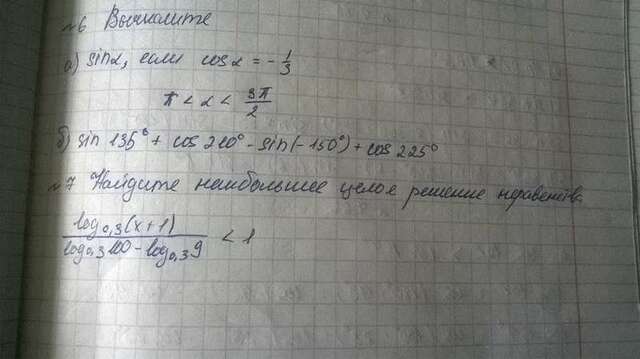 №6 Вычислите
а) sinα, если cosα = -1/3
π < α < 3π/2
б) sin 135° + cos 210° - sin(-150°) + cos 225°
№7 Найдите наибольшее целое решение неравенства
log₀,₃(x+1) / log₀,₃100 - log₀,₃9 < 1